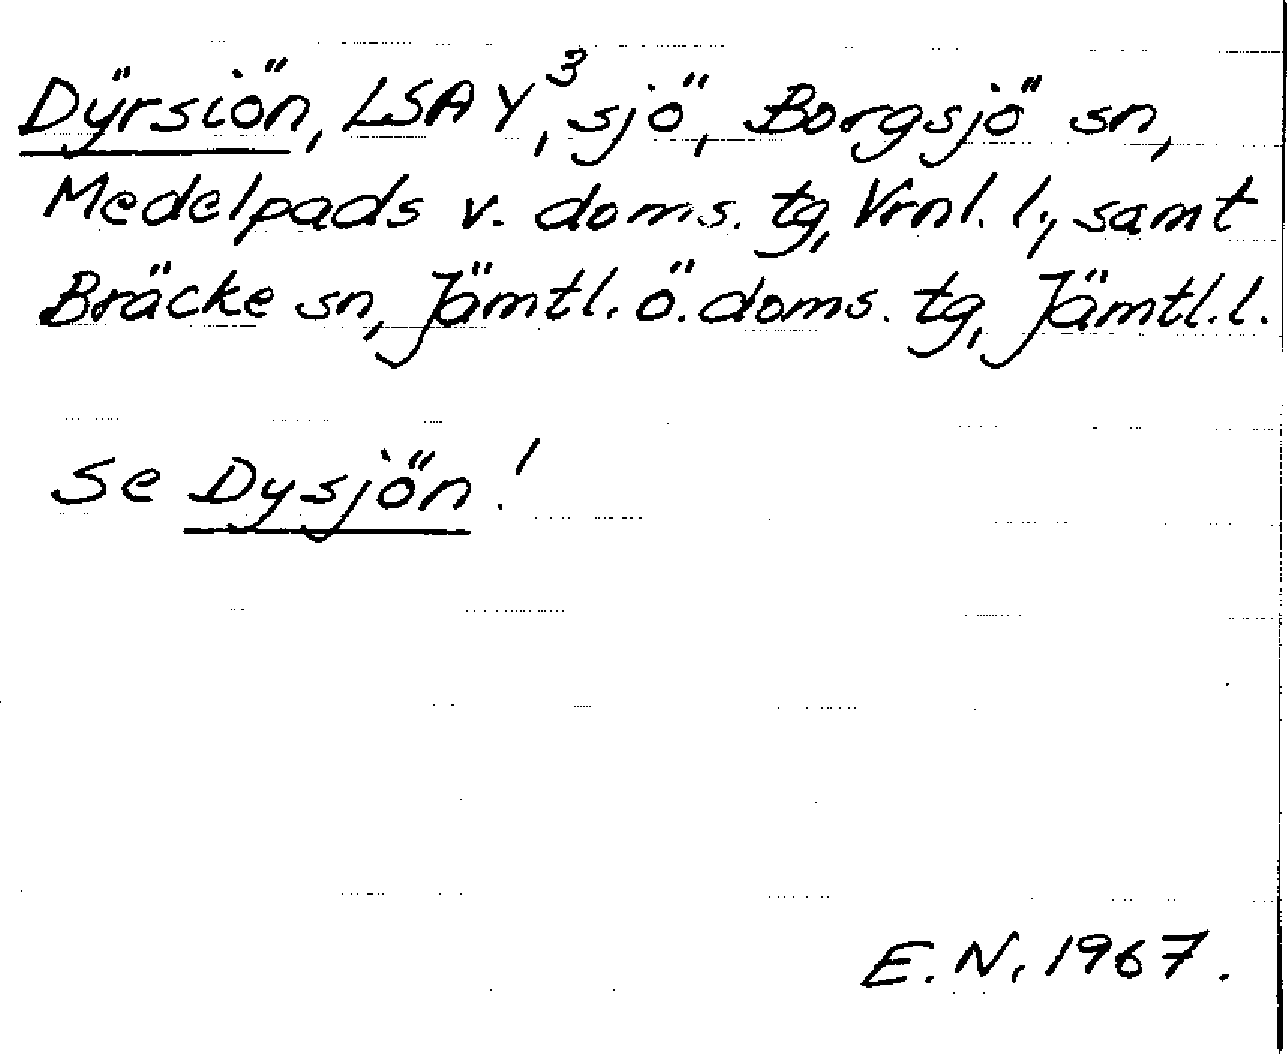 Dÿrsiön, LSA Y³, sjö, Borgsjö sn,
Medelpads v. doms. tg, Vrnl. l., samt
Bräcke sn, Jämtl. ö. doms. tg, Jämtl. l.
Se Dysjön!
E. N. 1967.